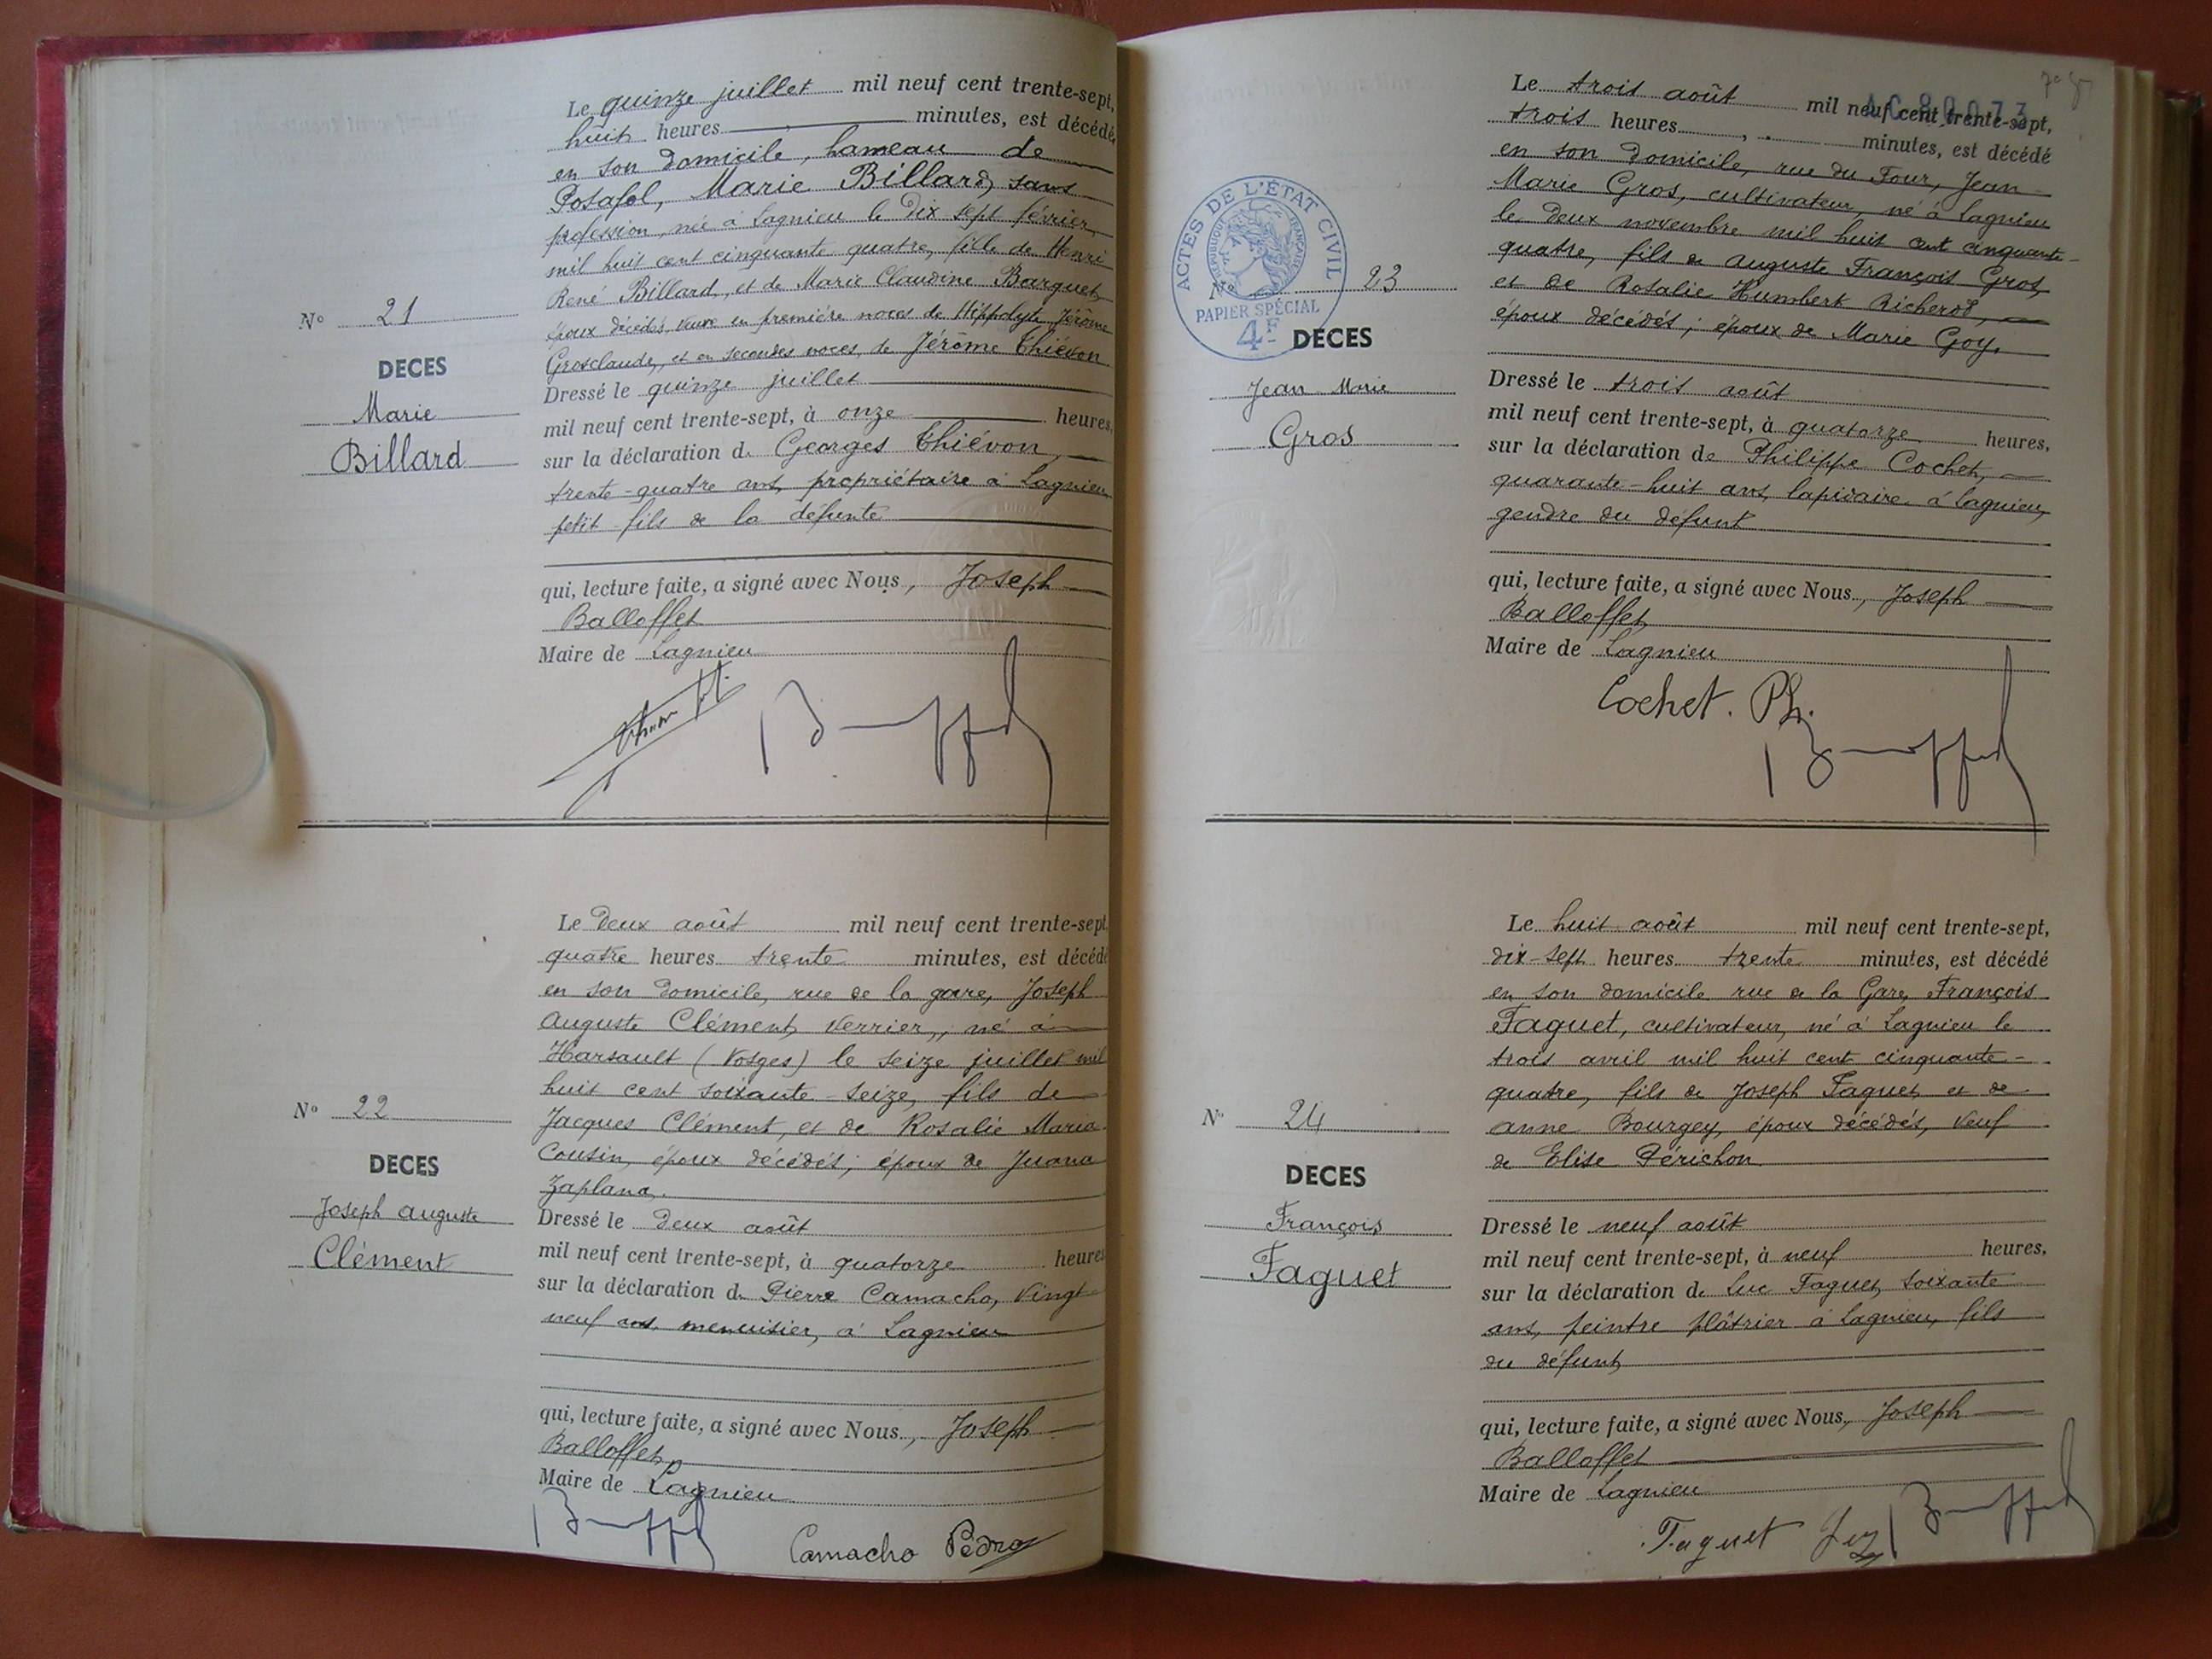 Le quinze juillet mil neuf cent trente-sept,
huit heures minutes, est décédé
en son domicile, hameau de
Posafol, Marie Billard, sans
profession, née à Lagnieu le dix sept février
mil huit cent cinquante quatre, fille de Henri
René Billard, et de Marie Claudine Barquet,
époux décédés, veuve en première noces de Hippolyte Jérôme
Grosclaude, et en secondes noces, de Jérôme Thiévon
N° 21
DECES
Marie
Billard
Dressé le quinze juillet
mil neuf cent trente-sept, à onze heures,
sur la déclaration d. Georges Thiévon,
trente-quatre ans, propriétaire à Lagnieu
petit-fils de la défunte
qui, lecture faite, a signé avec Nous, Joseph
Balloffet
Maire de Lagnieu
Le deux août mil neuf cent trente-sept,
quatre heures trente minutes, est décédé
en son domicile, rue de la gare, Joseph
Auguste Clément, verrier, né à
Harsault (Vosges) le seize juillet mil
huit cent soixante-seize, fils de
Jacques Clément, et de Rosalie Maria
Cousin, époux décédés; époux de Juana
Zaplana.
N° 22
DECES
Joseph Auguste
Clément
Dressé le deux août
mil neuf cent trente-sept, à quatorze heures
sur la déclaration d. Pierre Camacho, vingt
neuf ans, menuisier, à Lagnieu
qui, lecture faite, a signé avec Nous, Joseph
Balloffet,
Maire de Lagnieu
Camacho Pedro
Le trois août mil neuf cent trente-sept,
trois heures minutes, est décédé
en son domicile, rue du Four, Jean
Marie Gros, cultivateur, né à Lagnieu
le deux novembre mil huit cent cinquante-
quatre, fils de Auguste François Gros,
et de Rosalie Humbert Richerod,
époux décédés; époux de Marie Goy.
ACTES DE L'ÉTAT CIVIL
RÉPUBLIQUE FRANÇAISE
PAPIER SPÉCIAL
4F
N° 23
DECES
Jean-Marie
Gros
Dressé le trois août
mil neuf cent trente-sept, à quatorze heures,
sur la déclaration de Philippe Cochet,
quarante-huit ans, lapidaire à Lagnieu,
gendre du défunt
qui, lecture faite, a signé avec Nous, Joseph
Balloffet,
Maire de Lagnieu
Cochet. Ph.
Le huit août mil neuf cent trente-sept,
dix-sept heures trente minutes, est décédé
en son domicile rue de la Gare, François
Faguet, cultivateur, né à Lagnieu le
trois avril mil huit cent cinquante-
quatre, fils de Joseph Faguet, et de
Anne Bourgey, époux décédés, veuf
de Elise Périchon
N° 24
DECES
François
Faguet
Dressé le neuf août
mil neuf cent trente-sept, à neuf heures,
sur la déclaration de Luc Faguet, soixante
ans, peintre plâtrier à Lagnieu, fils
du défunt
qui, lecture faite, a signé avec Nous, Joseph
Balloffet
Maire de Lagnieu
Faguet